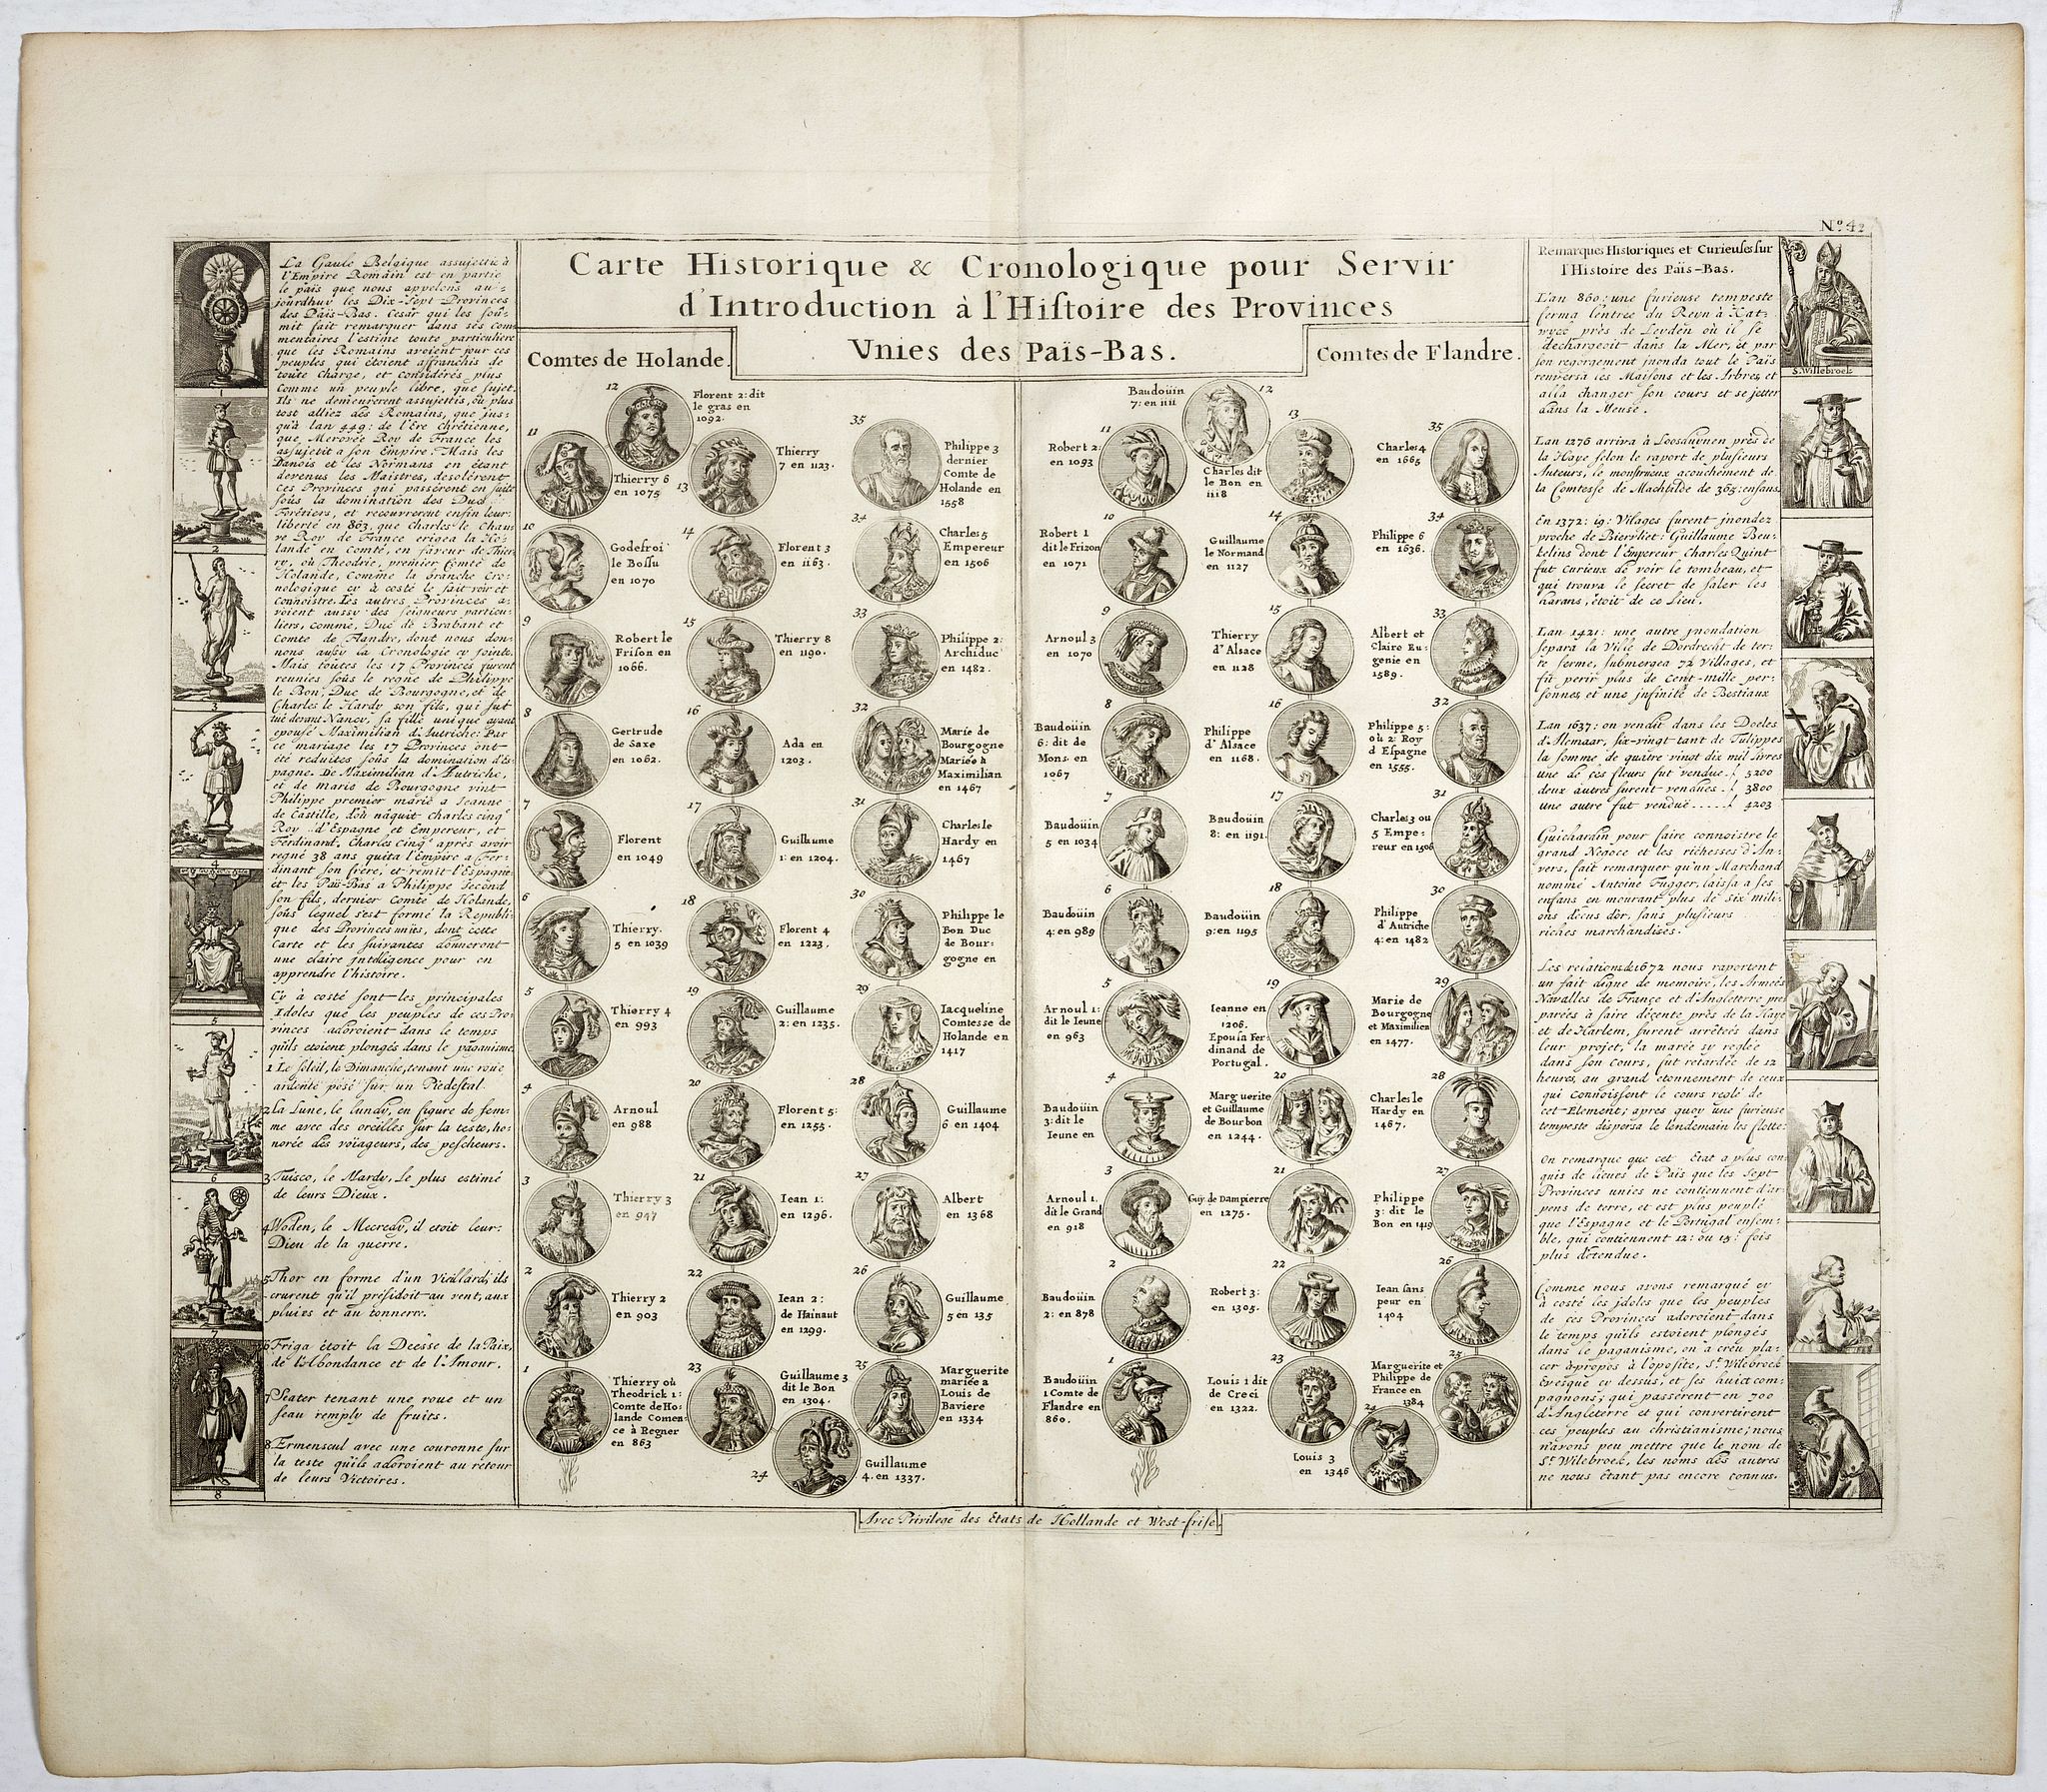 Nº. 42
Carte Historique & Cronologique pour Servir
d'Introduction à l'Histoire des Provinces
Vnies des Païs-Bas.
Comtes de Holande.
Comtes de Flandre.
La Gaule Belgique assujettie à
l'Empire Romain est en partie
le païs que nous appelons au-
jourdhuy les Dix-Sept Provinces
des Païs-Bas. Cesar qui les soû-
mit fait remarquer dans ses com
mentaires l'estime toute particuliere
que les Romains avoient pour ces
peuples qui étoient affranchis de
toute charge, et considérés plus
comme un peuple libre, que sujet.
Ils ne demeurerent assujettis, où plus
tost alliez des Romains, que jus-
qu'à lan 449: de l'Ere chrêtienne,
que Merovée Roy de France les
assujetit a son Empire. Mais les
Danois et les Normans en étant
devenus les Maistres, desolérent
ces Provinces qui passérent en suite
sous la domination des Ducs
Forêtiers, et recouvrerent enfin leur
liberté en 863, que Charles le Chau
ve Roy de France erigea la Ho-
lande en comté, en faveur de Thier
ry, où Theodric, premier Comte de
Holande, comme la branche Cro-
nologique cy à costé le fait voir et
connoistre. Les autres Provinces a-
voient aussy des seigneurs particu-
liers, comme, Duc de Brabant et
Comte de Flandre, dont nous don-
nons aussy la Cronologie cy jointe.
Mais toutes les 17 Provinces furent
reunies sous le regne de Philippe
le Bon, Duc de Bourgogne, et de
Charles le Hardy son fils, qui fut
tué devant Nancy, sa fille unique ayant
epousé Maximilian d'Autriche: Par
ce mariage les 17 Provinces ont
été reduites sous la domination d'Es
pagne. De Maximilian d'Autriche,
et de marie de Bourgogne vint
Philippe premier marié a Jeanne
de Castille, doù nâquit charles cinq
Roy d'Espagne et Empereur, et
Ferdinand. Charles Cinq après avoir
regné 38 ans quita l'Empire a Fer-
dinant son frere, et remit l'Espagne
et les Païs-Bas a Philippe second
son fils, dernier comte de Holande,
sous lequel s'est formé la Republi-
que des Provinces unies, dont cette
Carte et les suivantes donneront
une claire intelligence pour en
apprendre l'histoire.
Cy à costé sont les principales
Idoles que les peuples de ces Pro
vinces adoroient dans le temps
qu'ils etoient plongés dans le paganisme
1 Le soleil, le Dimanche, tenant une roue
ardente posé sur un Piedestal.
2 la Lune, le lundy, en figure de fem-
me avec des oreilles sur la teste, ho-
norée des voiageurs, des pescheurs.
3 Tuisco, le Mardy, Le plus estimé
de leurs Dieux.
4 Woden, le Mecredy, il etoit leur
Dieu de la guerre.
5 Thor en forme d'un Vieillard, ils
crurent qu'il présidoit au vent, aux
pluies et au tonnerre.
6 Friga étoit la Deesse de la Paix,
de l'Abondance et de l'Amour.
7 Seater tenant une roue et un
seau remply de fruits.
8 Ermenseul avec une couronne sur
la teste qu'ils adoroient au retour
de leurs Victoires.
1
2
3
4
5
6
7
8
1 Thierry où
Theodrick 1:
Comte de Ho-
lande Comen-
ce à Regner
en 863
2 Thierry 2
en 903
3 Thierry 3
en 947
4 Arnoul
en 988
5 Thierry 4
en 993
6 Thierry.
5 en 1039
7 Florent
en 1049
8 Gertrude
de Saxe
en 1062.
9 Robert le
Frison en
1066.
10 Godefroi
le Bossu
en 1070
11 Thierry 6
en 1075
12 Florent 2: dit
le gras en
1092.
13 Thierry
7 en 1123.
14 Florent 3
en 1163.
15 Thierry 8
en 1190.
16 Ada en
1203.
17 Guillaume
1: en 1204.
18 Florent 4
en 1223.
19 Guillaume
2: en 1235.
20 Florent 5:
en 1255.
21 Iean 1:
en 1296.
22 Iean 2:
de Hainaut
en 1299.
23 Guillaume 3
dit le Bon
en 1304.
24 Guillaume
4. en 1337.
25 Marguerite
mariée a
Louis de
Baviere
en 1334
26 Guillaume
5 en 135
27 Albert
en 1368
28 Guillaume
6 en 1404
29 Iacqueline
Comtesse de
Holande en
1417
30 Philippe le
Bon Duc
de Bour-
gogne en
31 Charles le
Hardy en
1467
32 Marie de
Bourgogne
Mariée à
Maximilian
en 1467
33 Philippe 2:
Archiduc
en 1482.
34 Charles 5
Empereur
en 1506
35 Philippe 3
dernier
Comte de
Holande en
1558
1 Baudoüin
1 Comte de
Flandre en
860.
2 Baudoüin
2: en 878
3 Arnoul 1.
dit le Grand
en 918
4 Baudoüin
3: dit le
Ieune en
5 Arnoul 1:
dit le Ieune
en 963
6 Baudoüin
4: en 989
7 Baudoüin
5 en 1034
8 Baudoüin
6: dit de
Mons en
1067
9 Arnoul 3
en 1070
10 Robert 1
dit le Frizon
en 1071
11 Robert 2:
en 1093
12 Baudoüin
7: en 1111
13 Charles dit
le Bon en
1118
14 Guillaume
le Normand
en 1127
15 Thierry
d'Alsace
en 1128
16 Philippe
d'Alsace
en 1168.
17 Baudoüin
8: en 1191.
18 Baudoüin
9: en 1195
19 Ieanne en
1206.
Epousa Fer-
dinand de
Portugal.
20 Marguerite
et Guillaume
de Bourbon
en 1244.
21 Guy de Dampierre
en 1275.
22 Robert 3:
en 1305.
23 Louis 1 dit
de Creci
en 1322.
24 Louis 3
en 1346
25 Marguerite et
Philippe de
France en
1384
26 Iean sans
peur en
1404
27 Philippe
3: dit le
Bon en 1419
28 Charles le
Hardy en
1467.
29 Marie de
Bourgogne
et Maximilien
en 1477.
30 Philippe
d'Autriche
4: en 1482
31 Charles 3 ou
5 Empe-
reur en 1506
32 Philippe 5:
où 2: Roy
d'Espagne
en 1555.
33 Albert et
Claire Eu-
genie en
1589.
34 Philippe 6
en 1636.
35 Charles 4
en 1665
Remarques Historiques et Curieuses sur
l'Histoire des Païs-Bas.
L'an 860: une furieuse tempeste
ferma l'entrée du Reyn à Cat-
wyce près de Leyden où il se
dechargeoit dans la Mer, et par
son regorgement jnonda tout le Païs
renversa les Maisons et les Arbres, et
alla changer son cours et se jetter
dans la Meuse.
Lan 1276 arriva à Loosduynen près de
la Haye selon le raport de plusieurs
Auteurs, le monstrueux acouchement de
la Comtesse de Machtilde de 365: enfans.
En 1372: 19: Vilages furent jnondez
proche de Biervliet: Guillaume Beu-
kelins dont l'Empereur Charles Quint
fut curieux de voir le tombeau, et
qui trouva le secret de saler les
harans, étoit de ce Lieu.
Lan 1421: une autre jnondation
separa la Ville de Dordrecht de ter-
re ferme, submergea 72 villages, et
fit perir plus de cent-mille per-
sonnes, et une infinité de Bestiaux
Lan 1637: on vendit dans les Doeles
d'Alcmaar, six-vingt tant de Tulippes
la somme de quatre vingt dix mil livres
une de ces fleurs fut vendue. 5200
deux autres furent vendues. 3800
une autre fut vendue ..... 4203
Guichardin pour faire connoistre le
grand Negoce et les richesses d'An-
vers, fait remarquer qu'un Marchand
nommé Antoine Fugger, laissa a ses
enfans en mourant plus de six mili-
ons décus d'or, sans plusieurs
riches marchandises.
Les relations de 1672 nous raportent
un fait digne de memoire, les Armées
Navalles de France et d'Angleterre pre
parées à faire décente près de la Haye
et de Harlem, furent arrêteés dans
leur projet, la marée sy reglée
dans son Cours, fut retardée de 12
heures, au grand etonnement de ceux
qui connoissent le cours reglé de
cet Element; apres quoy une furieuse
tempeste dispersa le lendemain les flotte.
On remarque que cet Etat a plus con
quis de lieues de Païs que les Sept
Provinces unies ne contiennent d'ar-
pens de terre, et est plus peuplé
que l'Espagne et le Portugal ensem-
ble, qui contiennent 12: ou 15: fois
plus détendue.
Comme nous avons remarqué cy
à costé les jdoles que les peuples
de ces Provinces adoroient dans
le temps qu'ils estoient plongés
dans le paganisme, on a creu pla-
cer àpropos à l'oposite, St. Wilebroek
Evesque cy dessus, et ses huict com-
pagnons; qui passérent en 700
d'Angleterre et qui convertirent
ces peuples au christianisme; nous
n'avons peu mettre que le nom de
St. Wilebroek, les noms des autres
ne nous étant pas encore connus.
S. Willebroek
Avec Privilege des Etats de Hollande et West-frise.